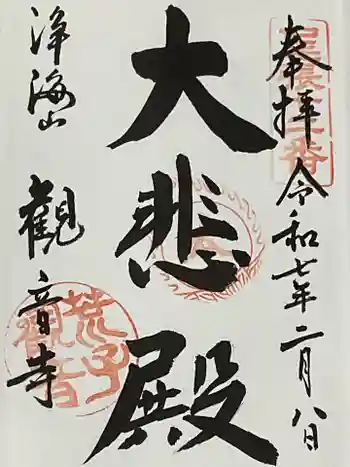 奉拝 令和七年二月八日
大悲殿
浄海山 觀音寺
荒子観音